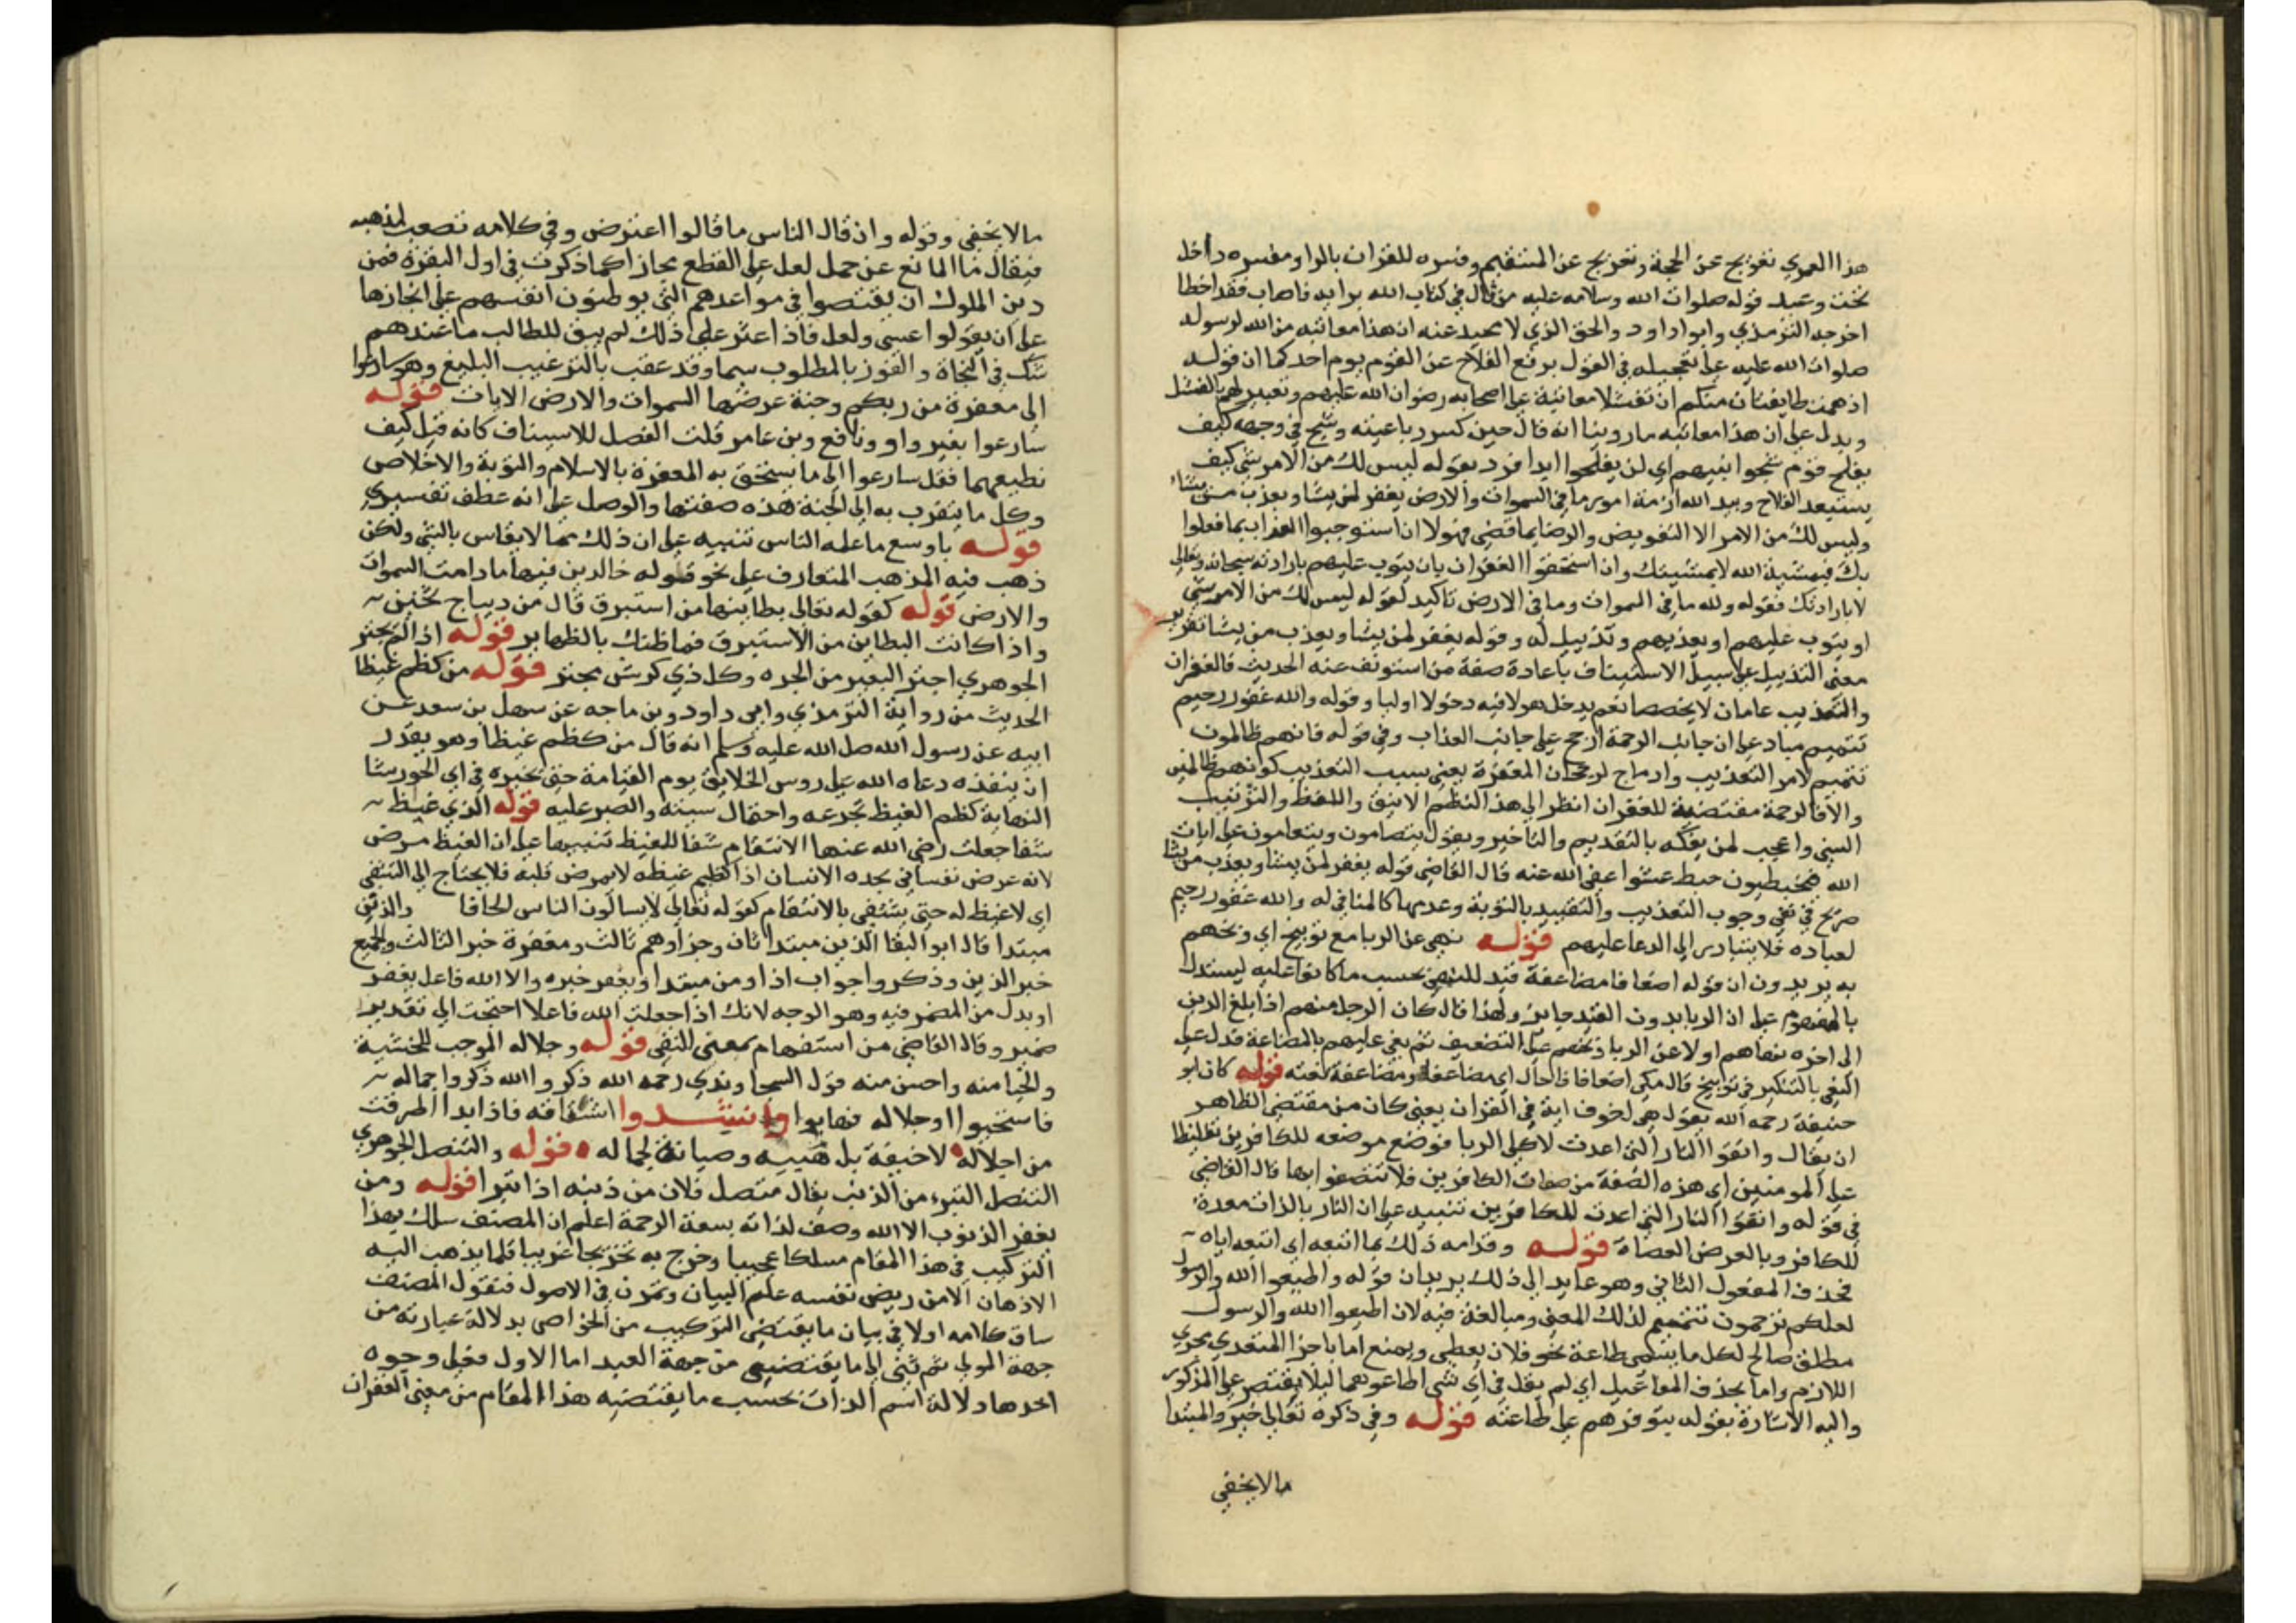 هذا العمري تعريج عن المحجة وتعريج عن المستقيم وفسره للقران بالراو مفسره داخل
تحت وعيد قوله صلوات الله وسلامه عليه من قال في كتاب الله برايه فاصاب فقد اخطا
اخرجه الترمذي وابو داود والحق الذي لا محيد عنه ان هذا معاتبه من الله لرسوله
صلوات الله عليه على تعجيله في القول برفع الفلاح عن القوم يوم احد كما ان قوله
اذ همت طايفتان منكم ان تفشلا معاتبة على اصحابه رضوان الله عليهم وتعبير لهم بالفشل
ويدل على ان هذا معاتبه ما روينا انه قال حين كسر رباعيته وشج في وجهه كيف
يفلح قوم شجوا نبيهم اي لن يفلحوا ابدا فرد بقوله ليس لك من الامر شي كيف
يستبعد الفلاح وبيد الله ازمة امور ما في السموات والارض يغفر لمن يشا ويعذب من يشاء
وليس لك من الامر الا التفويض والرضا بما قضى فهولا ان استوجبوا العذاب بما فعلوا
بك فبمشية الله لا بمشيتك وان استحقوا الغفران بان يتوب عليهم بارادته سبحانه وتعالى
لا بارادتك فقوله ولله ما في السموات وما في الارض تاكيد لقوله ليس لك من الامر شي
او يتوب عليهم او يعذبهم وتذييل له وقوله يغفر لمن يشا ويعذب من يشا تقرير
معنى التذييل على سبيل الاستيناف باعادة صفة من استونف عنه الحديث فالغفران
والتعذيب عامان لا يخصصا نعم يدخل هولا فيه دخولا اوليا وقوله والله غفور رحيم
تتميم مباد على ان جانب الرحمة ارجح على جانب العذاب وفي قوله فانهم ظالمون
تتميم لامر التعذيب وادماج لرجحان المغفرة يعني بسبب التعذيب كونهم ظالمين
والا فالرحمة مقتضية للغفران انظر الى هذا النظم الانيق واللفظ والترتيب
السني واعجب لمن يفكه بالتقديم والتاخير ويقول يتصامون ويتعامون على ايات
الله فيخبطون خبط عشوا عفى الله عنه قال القاضي قوله يغفر لمن يشا ويعذب من يشا
صريح في نفي وجوب التعذيب والتقييد بالتوبة وعدمها كالمنافي له والله غفور رحيم
لعباده فلا يتبادر الى الدعا عليهم قوله نهي عن الربا مع توبيخ اي وبخهم
به يريدون ان قوله اضعافا مضاعفة قيد للنهي بحسب ما كانوا عليه ليستدل
بالمفهوم على ان الربا بدون القيد جايز ولهذا قال كان الرجل منهم اذا بلغ الدين
الى اخره نهاهم اولا عن الربا ثم على التضعيف ثم بغى عليهم بالمضاعة فدل على
البغي بالتنكير في توبيخ قال مكي اضعافا حال اي مضاعفا ومضاعفة نعته قوله كان ابو
حنيفة رحمه الله يقول هي اخوف اية في القران يعني كان من مقتضى الظاهر
ان يقال واتقوا النار التي اعدت لاكلي الربا فوضع موضعه للكافرين تغليظا
على المومنين اي هذه الصفة من صفات الكافرين فلا تتصفوا بها قال القاضي
في قوله واتقوا النار التي اعدت للكافرين تنبيه على ان النار بالذات معدة
للكافر وبالعرض العصاة قوله وقد امه ذلك بما اتبعه اي اتبعه اياه
فحذف المفعول الثاني وهو عايد الى ذلك يريد ان قوله واطيعوا الله والرسول
لعلكم ترحمون تتميم لذلك المعنى ومبالغة فيه لان اطيعوا الله والرسول
مطلق صالح لكل ما يسمى طاعة نحو فلان يعطي ويمنع اما باجرا المتعدي مجرى
اللازم واما بحذف المفاعيل اي لم يقل في اي شي اطاعوهما ليلا يقتصر على المذكور
واليه الاشارة بقوله بتوفرهم على طاعته قوله وفي ذكره تعالى خبر والمبتدا
مالا يخفى
مالا يخفى وقوله وان قال الناس ما قالوا اعتراض وفي كلامه تعصب لمذهبه
فيقال ما المانع عن حمل لعل على القطع مجازا كما ذكرت في اول البقرة فمن
دين الملوك ان يقتصروا في مواعدهم التي يوطنون انفسهم على انجازها
على ان يقولوا عسى ولعل فاذا عثر على ذلك لم يبق للطالب ما عندهم
شك في النجاة والفوز بالمطلوب سيما وقد عقب بالترغيب البليغ وهو سارعوا
الى مغفرة من ربكم وجنة عرضها السموات والارض الايات قوله
سارعوا بغير واو ونافع وبن عامر قلت الفصل للاستيناف كانه قيل كيف
نطيعهما فقل سارعوا الى ما يستحق به المغفرة بالاسلام والتوبة والاخلاص
وكل ما يتقرب به الى الجنة هذه صفتها والوصل على انه عطف تفسيري
قوله باوسع ما علمه الناس تنبيه على ان ذلك مما لا يقاس بالشي ولكن
ذهب فيه المذهب المتعارف على نحو قوله خالدين فيها ما دامت السموات
والارض قوله كقوله تعالى بطاينها من استبرق قال من ديباج ثخين
واذا كانت البطاين من الاستبرق فما ظنك بالظهاير قوله اذا لم يجتر
الجوهري اجتر البعير من الجره وكل ذي كرش يجتر قوله من كظم غيظا
الحديث من رواية الترمذي وابي داود وبن ماجه عن سهل بن سعد عن
ابيه عن رسول الله صل الله عليه وسلم انه قال من كظم غيظا وهو يقدر
ان ينفذه دعاه الله على روس الخلايق يوم القيامة حتى يخيره في اي الحور شا
النهاية كظم الغيظ تجرعه واحتمال سببه والصبر عليه قوله الذي غيظ
شفا جعلت رضي الله عنها الانتقام شفا للغيظ تنبيها على ان الغيظ مرض
لانه عرض نفساني يجده الانسان اذا كظم غيظه لا يمرض قلبه فلا يحتاج الى التشفي
اي لا غيظ له حتى يشتفي بالانتقام كقوله تعالى لا يسالون الناس الحافا والذين
مبتدا قال ابو البقا الذين مبتدا ثان وجزاوهم ثالث ومغفرة خبر الثالث والجميع
خبر الذين وذكروا جواب اذا ومن مبتدا ويغفر خبره والا الله فاعل يغفر
او بدل من المضمر فيه وهو الوجه لانك اذا جعلت الله فاعلا احتجت الى تقدير
ضمير وقال القاضي من استفهام بمعنى النفي قوله وجلاله الموجب للخشية
والحيا منه واحسن منه قول السجاوندي رحمه الله ذكروا الله ذكروا جماله
فاستحيوا او جلاله فهابوا وانشدوا اشتاقه فاذا بدا اطرقت
من اجلاله لا خيفة بل هيبه وصيانة لجماله قوله والتنصل الجوهري
التنصل التبرء من الذنب يقال متصل فلان من ذنبه اذا تبرا قوله ومن
يغفر الذنوب الا الله وصف لذاته بسعة الرحمة اعلم ان المصنف سلك بهذا
التركيب في هذا المقام مسلكا عجيبا وخرج به تخريجا غريبا قلما يذهب اليه
الاذهان الا من ريض نفسه علم البيان وتمرن في الاصول فنقول المصنف
ساق كلامه اولا في بيان ما يقتضي التركيب من الخواص بدلالة عبارته من
جهة المولى ثم ثنى الى ما يقتضيه من جهة العبد اما الاول فعلى وجوه
احدها دلالة اسم الذات بحسب ما يقتضيه هذا المقام من معنى الغفران